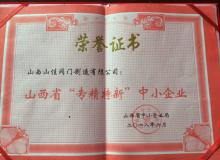 荣誉证书
山西山佳阀门制造有限公司：
山西省“专精特新”中小企业
山西省中小企业局
二〇一八年六月